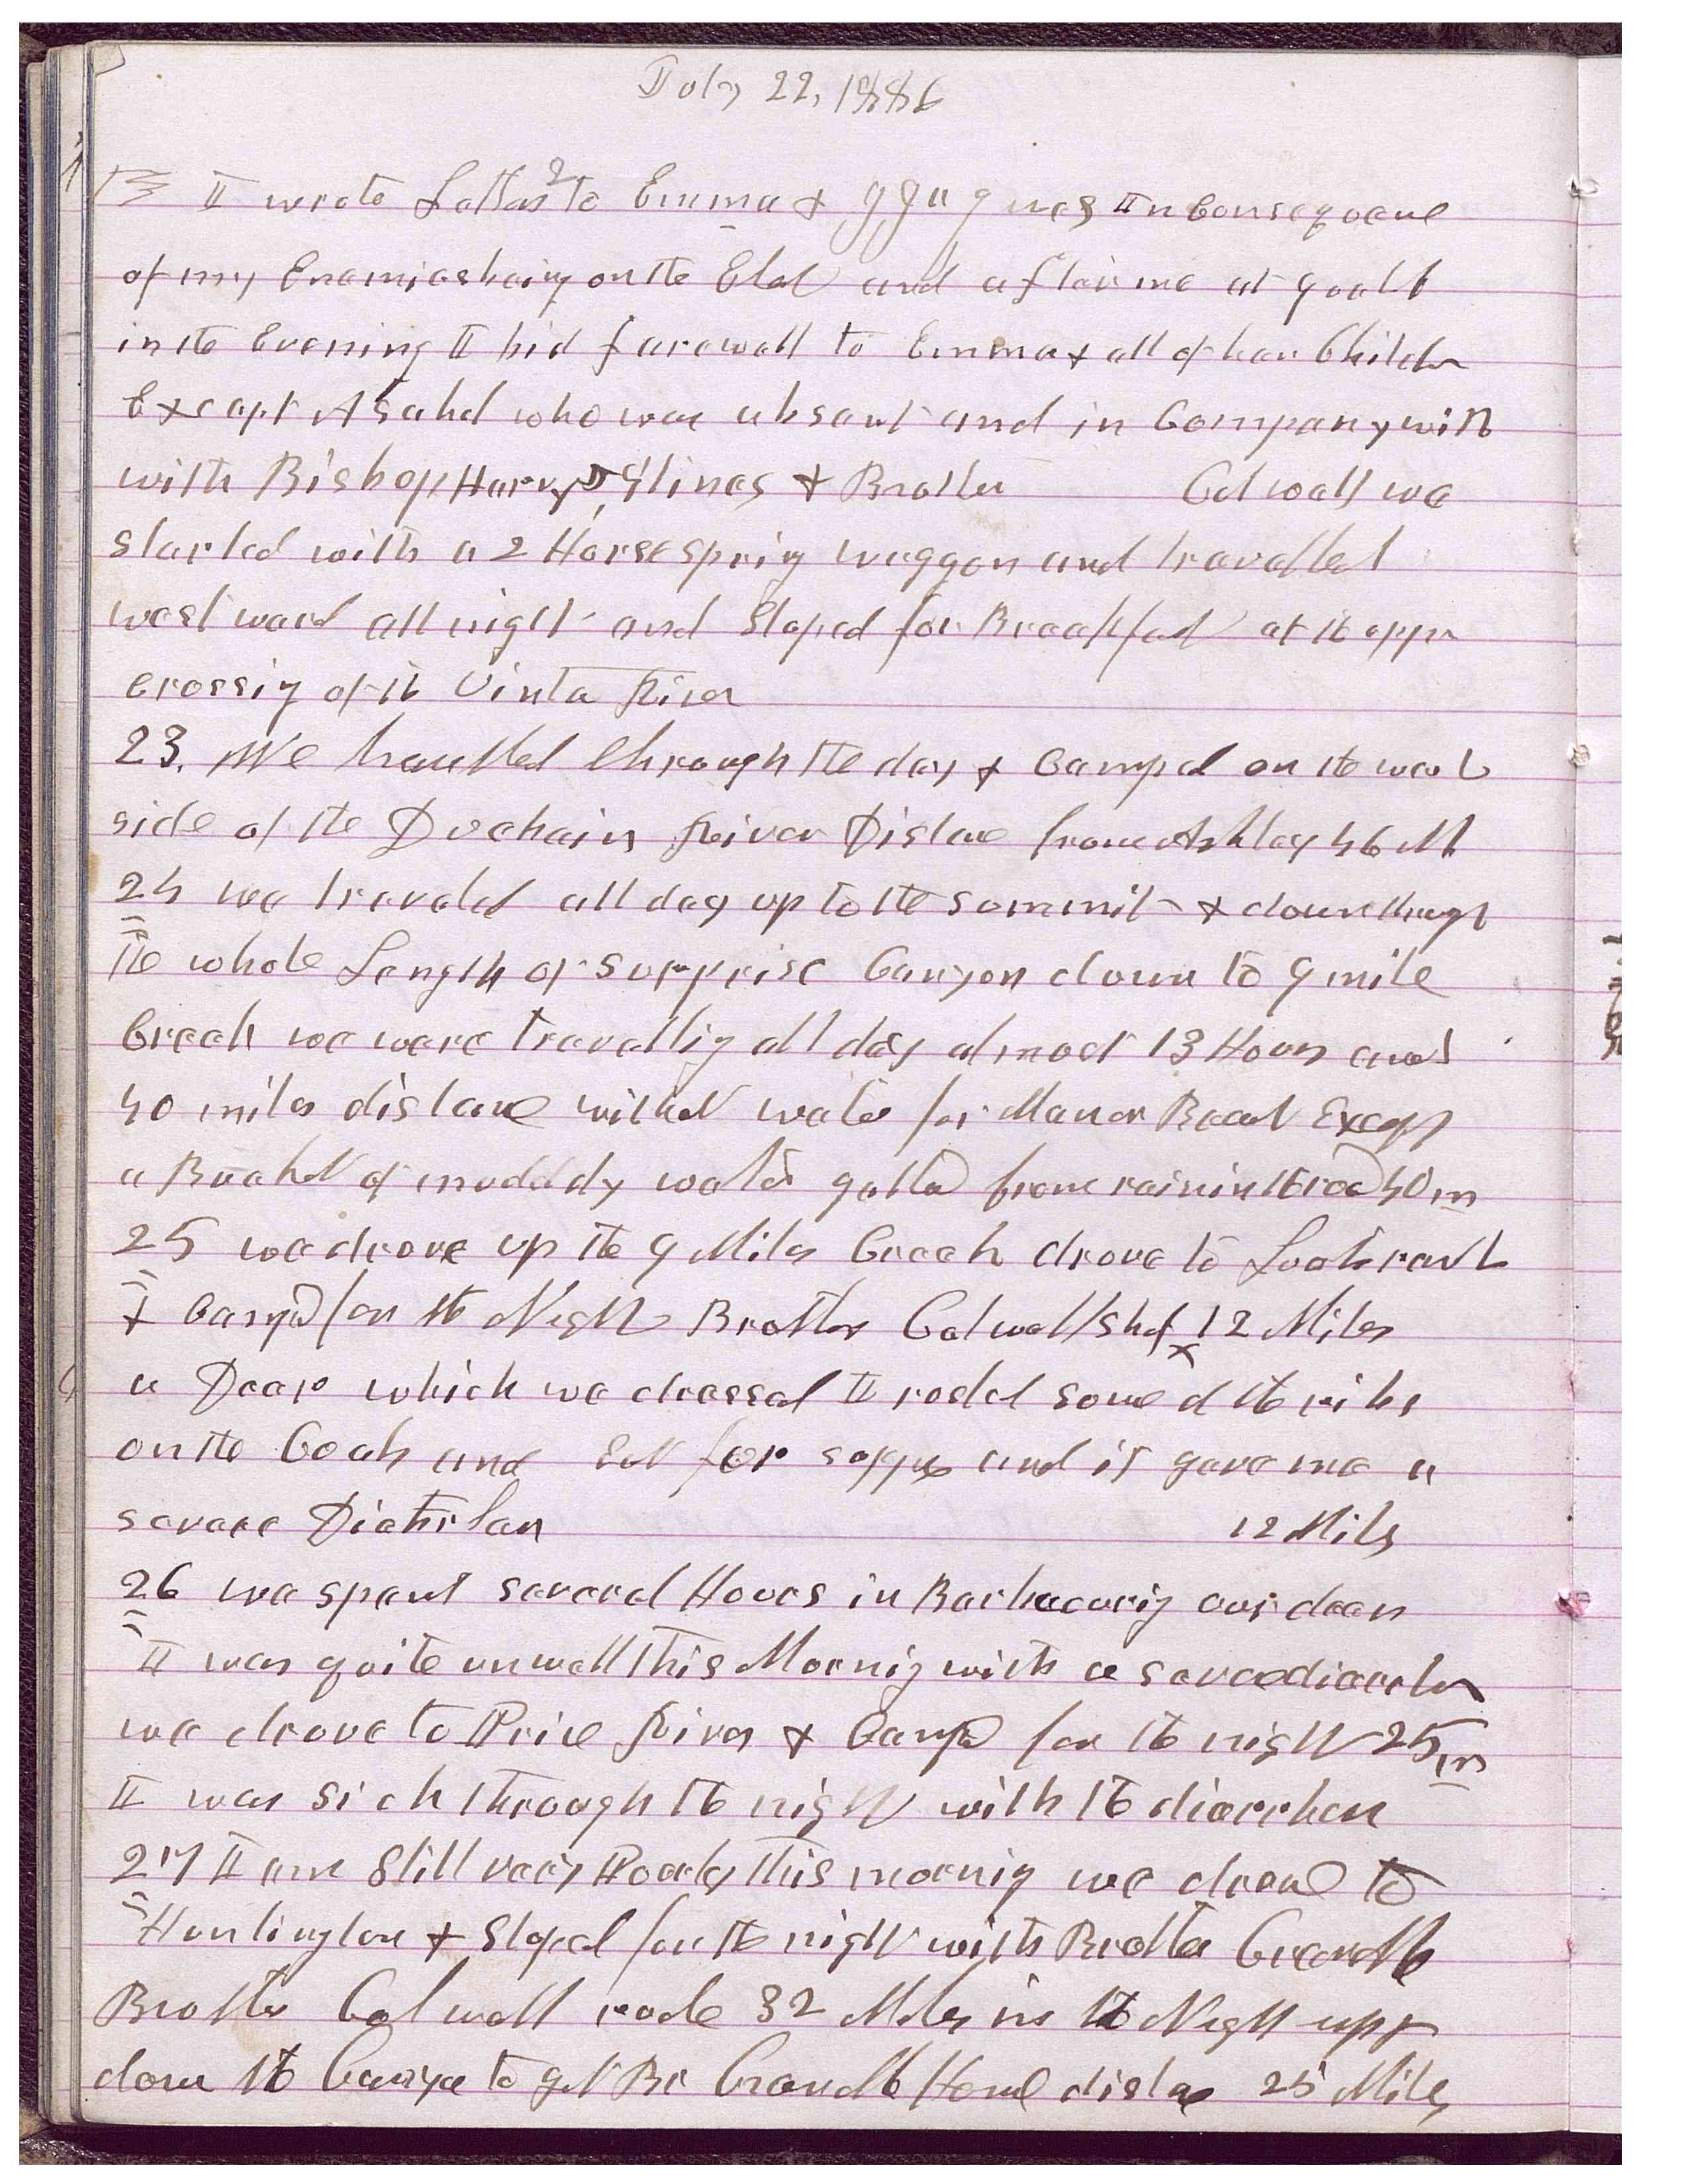 July 22, 1886
I wrote 2 Letters to Emma & In Consequence
of my Enemies being on the and after me at
in the Evening I bid farewell to Emma & all of her Childn
Except Asahel who was absent and in Company with
with Bishop & Brother Colwell we
started with a 2 Horse sprig waggon and travelled
west ward all night and Stoped for Breakfast at the upper
crossig of the Uinta River
23. We travelled through the day & Camped on the west
side of the Duchain River Distance from Ashley 46 M
24 we traveled all day up to the summit & down through
the whole Length of Surprise Canyon down to 9 mile
Creek we were travellig all day almost 13 Hours and
40 miles distance without water for Man or Beast Except
a Bucket of mudddy water gotten from rain in the road 40 m
25 we drove up the 9 Miles Creek drove to
& Campd for the Night Brother Colwell Shot 12 Miles
a Deer which we dressed I rosted some of the ribs
on the Coals and Eat for supper and it gave me a
severe 12 Miles
26 we spent several Hours in Barbecurig our deer
I was quite unwell this Mornig with a severe
we drove to Price River & Campd for the night 25 m
I was sick through the night with the diarrhea
27 I am Still very Poorly this mornig we drove to
Huntington & Stoped for the night with Brother
Brother Colwell rode 32 Miles in the Night up &
down the Canyon to get Br Home distance 25 Miles